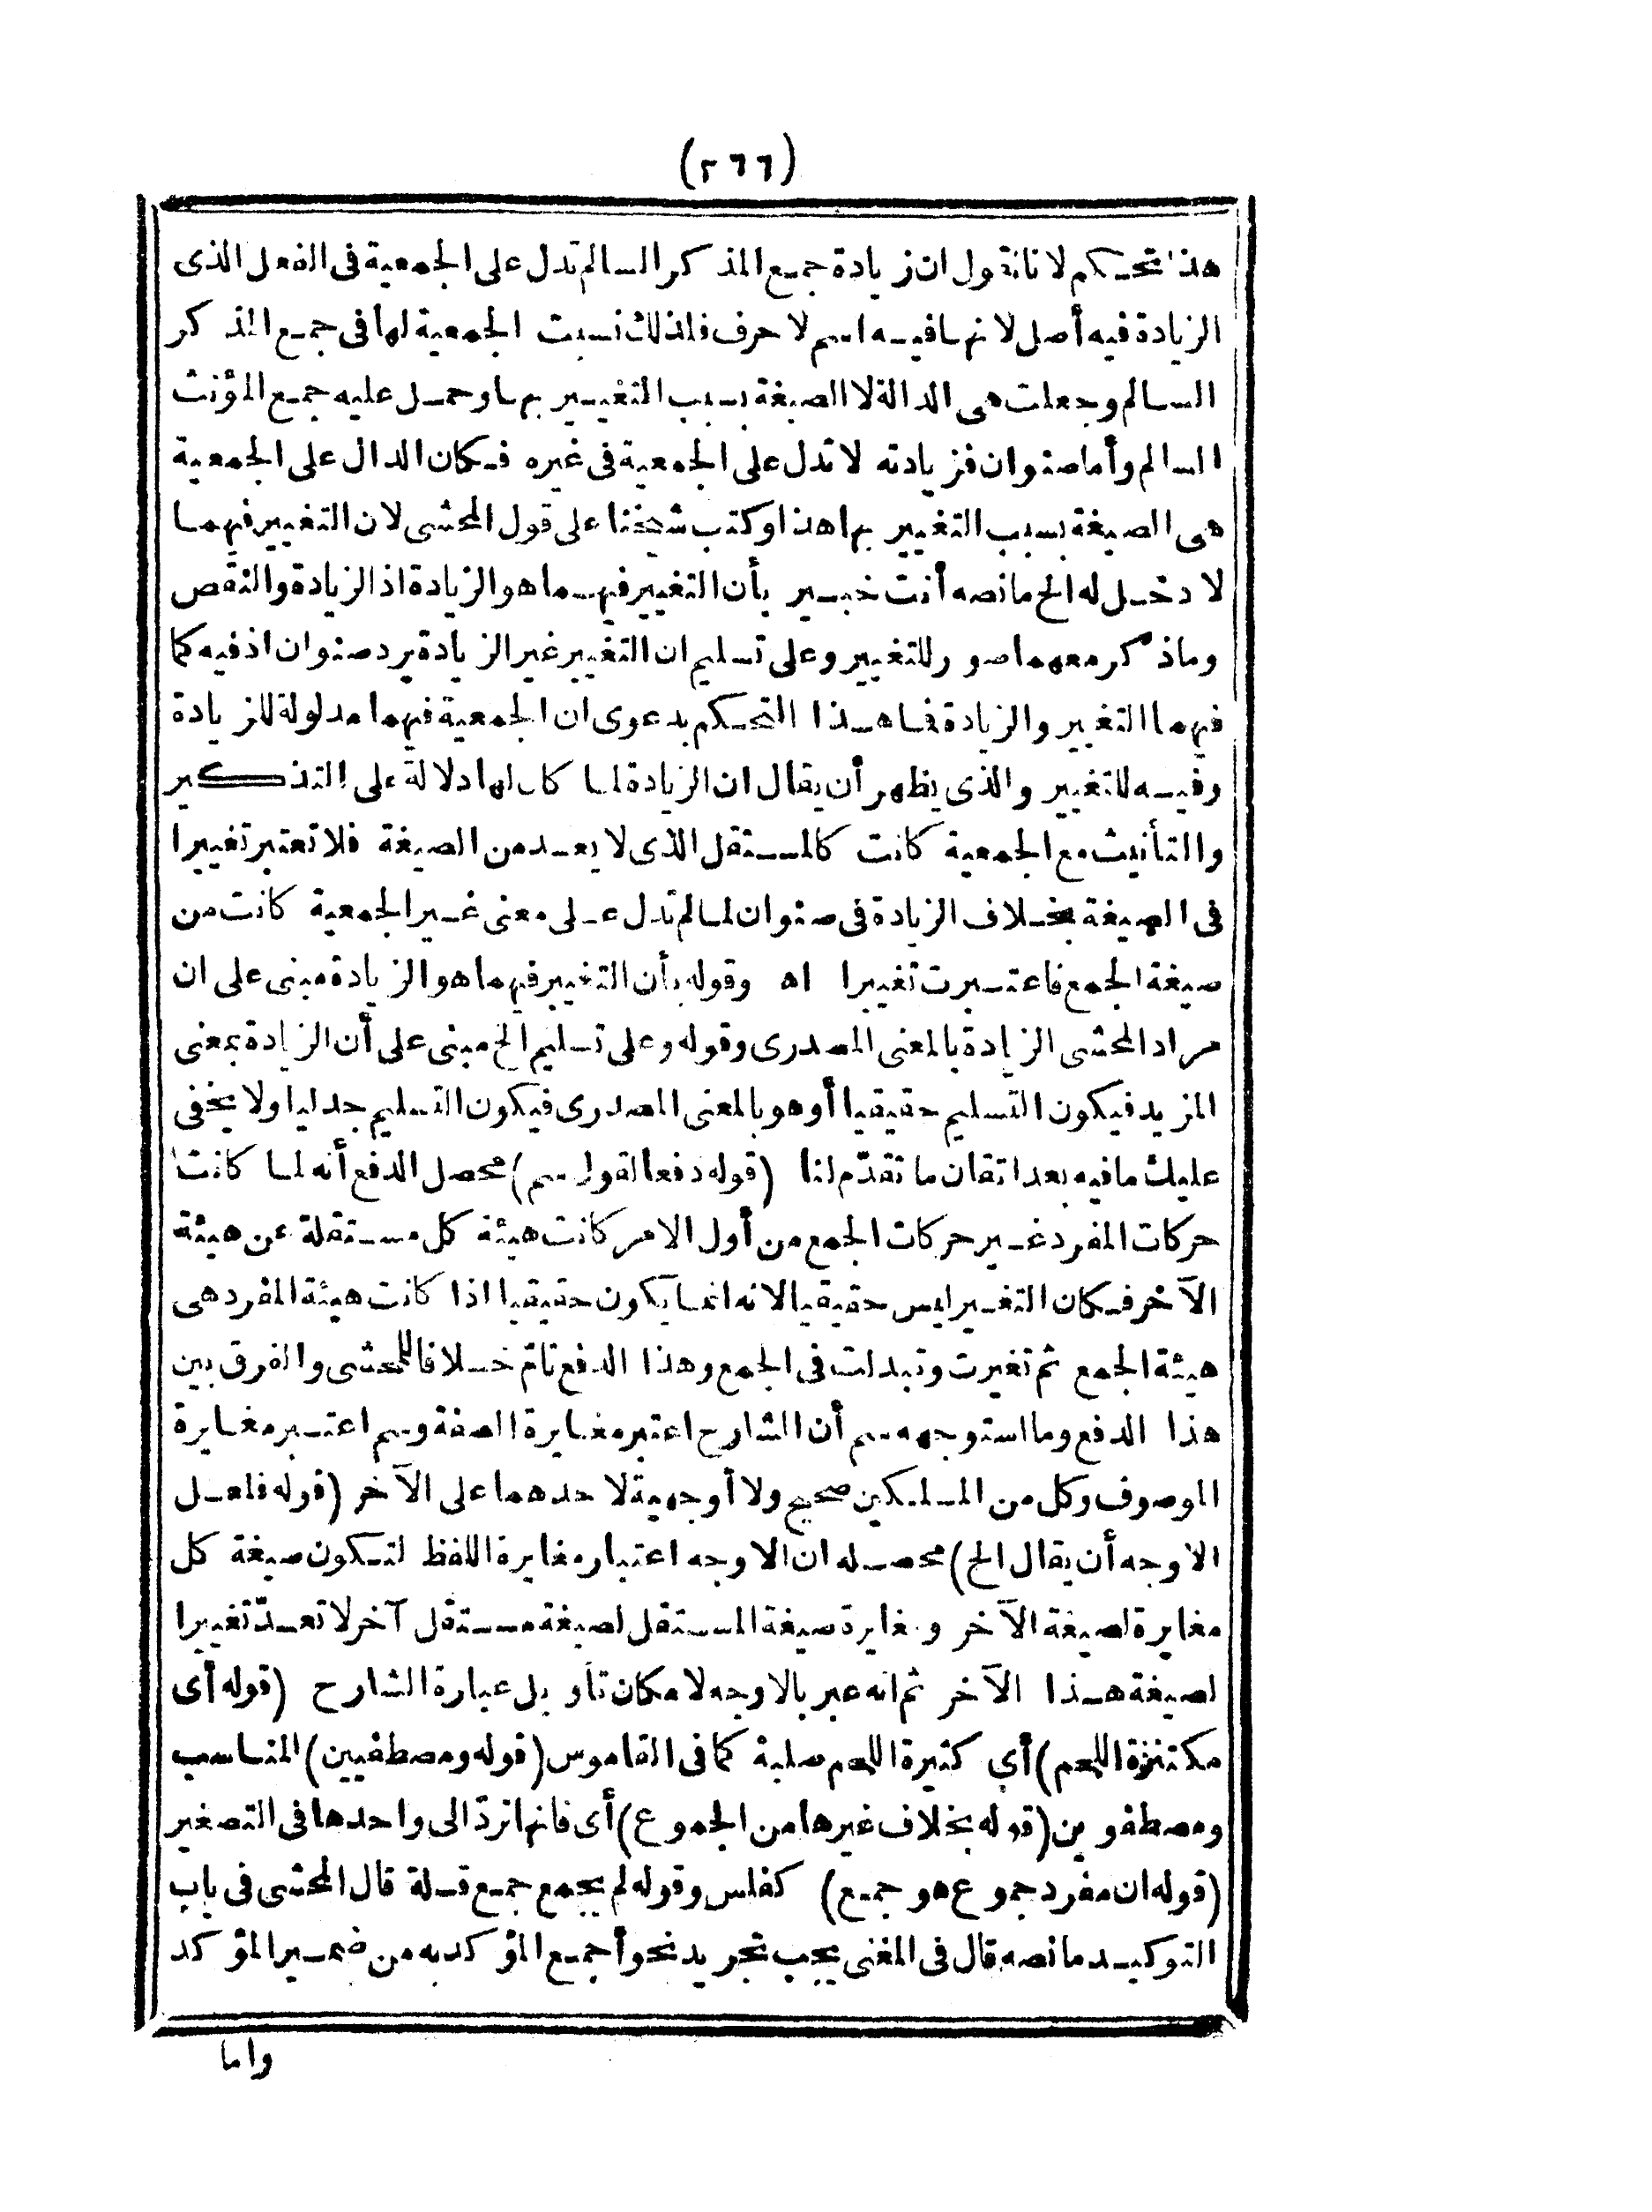 (٢٦٦)
هذا تحكم لانا نقول ان زيادة جمع المذكر السالم تدل على الجمعية فى الفعل الذى
الزيادة فيه أصل لانها فيه اسم لا حرف فلذلك نسبت الجمعية لها فى جمع المذكر
السالم وجعلت هى الدالة لا الصيغة بسبب التغيير بها وحمل عليه جمع المؤنث
السالم وأما صنوان فزيادته لا تدل على الجمعية فى غيره فكان الدال على الجمعية
هى الصيغة بسبب التغيير بها هذا وكتب شيخنا على قول المحشى لان التغيير فيهما
لا دخل له الخ ما نصه أنت خبير بأن التغيير فيهما هو الزيادة اذ الزيادة والنقص
وما ذكر معهما صور للتغيير وعلى تسليم ان التغيير غير الزيادة يرد صنوان اذ فيه كما
فيهما التغيير والزيادة فما هذا التحكم بدعوى ان الجمعية فيهما مدلولة للزيادة
وفيه للتغيير والذى يظهر أن يقال ان الزيادة لما كان لها دلالة على التذكير
والتأنيث مع الجمعية كانت كالمستقل الذى لا يعد من الصيغة فلا تعتبر تغييرا
فى الصيغة بخلاف الزيادة فى صنوان لما لم تدل على معنى غير الجمعية كانت من
صيغة الجمع فاعتبرت تغييرا اه وقوله بأن التغيير فيهما هو الزيادة مبنى على ان
مراد المحشى الزيادة بالمعنى المصدرى وقوله وعلى تسليم الخ مبنى على أن الزيادة بمعنى
المزيد فيكون التسليم حقيقيا أو هو بالمعنى المصدرى فيكون التسليم جدليا ولا يخفى
عليك ما فيه بعد اتقان ما تقدّم لنا (قوله دفعا لقول سم) محصل الدفع أنه لما كانت
حركات المفرد غير حركات الجمع من أول الامر كانت هيئة كل مستقلة عن هيئة
الآخر فكان التغيير ليس حقيقيا لانه انما يكون حقيقيا اذا كانت هيئة المفرد هى
هيئة الجمع ثم تغيرت وتبدلت فى الجمع وهذا الدفع تامّ خلافا للمحشى والفرق بين
هذا الدفع وما استوجهه سم أن الشارح اعتبر مغايرة الصفة وسم اعتبر مغايرة
الموصوف وكل من المسلكين صحيح ولا أوجهية لاحدهما على الآخر (قوله فلعل
الاوجه أن يقال الخ) محصله ان الاوجه اعتبار مغايرة اللفظ لتكون صيغة كل
مغايرة لصيغة الآخر ومغايرة صيغة المستقل لصيغة مستقل آخر لا تعدّ تغييرا
لصيغة هذا الآخر ثم انه عبر بالاوجه لامكان تأويل عبارة الشارح (قوله أى
مكتنزة اللحم) أى كثيرة اللحم صلبة كما فى القاموس (قوله ومصطفيين) المناسب
ومصطفوين (قوله بخلاف غيرها من الجموع) أى فانها تردّ الى واحدها فى التصغير
(قوله ان مفرد جموع هو جمع) كفلس وقوله لم يجمع جمع قلة قال المحشى فى باب
التوكيد ما نصه قال فى المغنى يجب تجريد نحو أجمع المؤكد به من ضمير المؤكد
واما